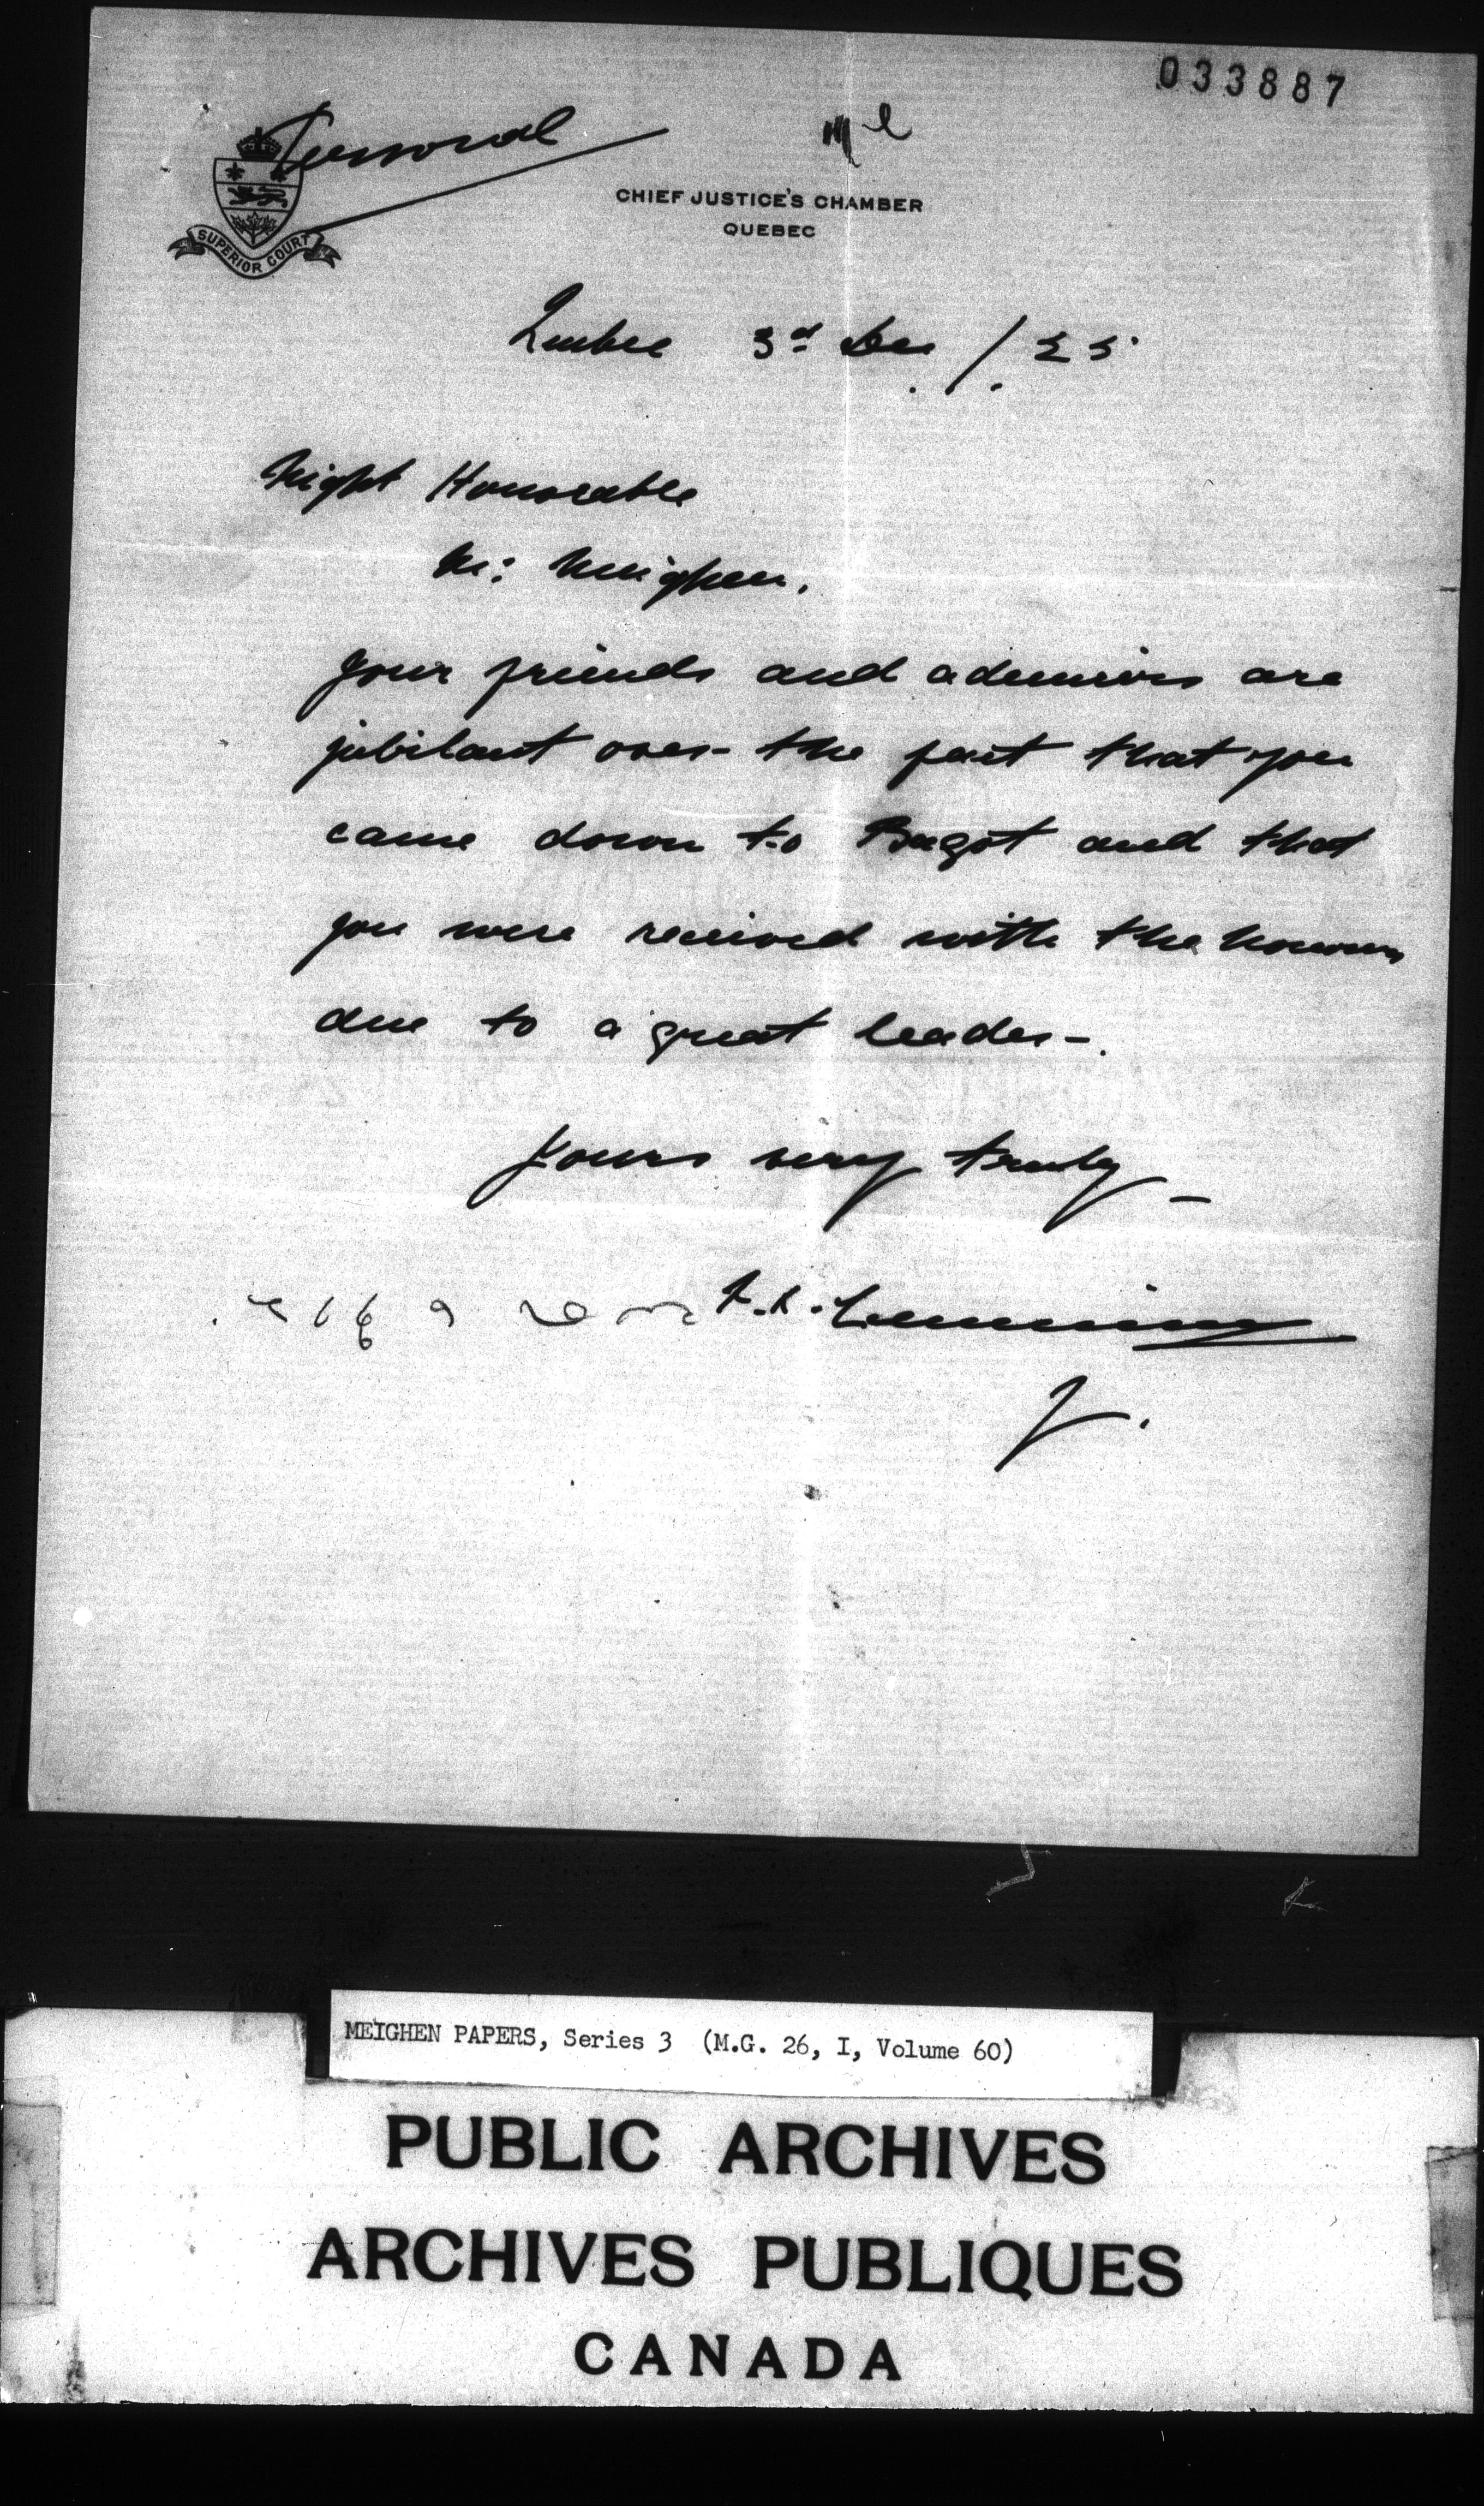 033887
Personal
CHIEF JUSTICE'S CHAMBER
QUEBEC
SUPERIOR COURT
Quebec 3rd Dec. / . 25
Right Honorable
Mr: Meighen.
Your friends and admirers are
jubilant over the fact that you
came down to Bagot and that
you were received with the honours
due to a great leader.
Yours very truly
J.
MEIGHEN PAPERS, Series 3 (M.G. 26, I, Volume 60)
PUBLIC ARCHIVES
ARCHIVES PUBLIQUES
CANADA